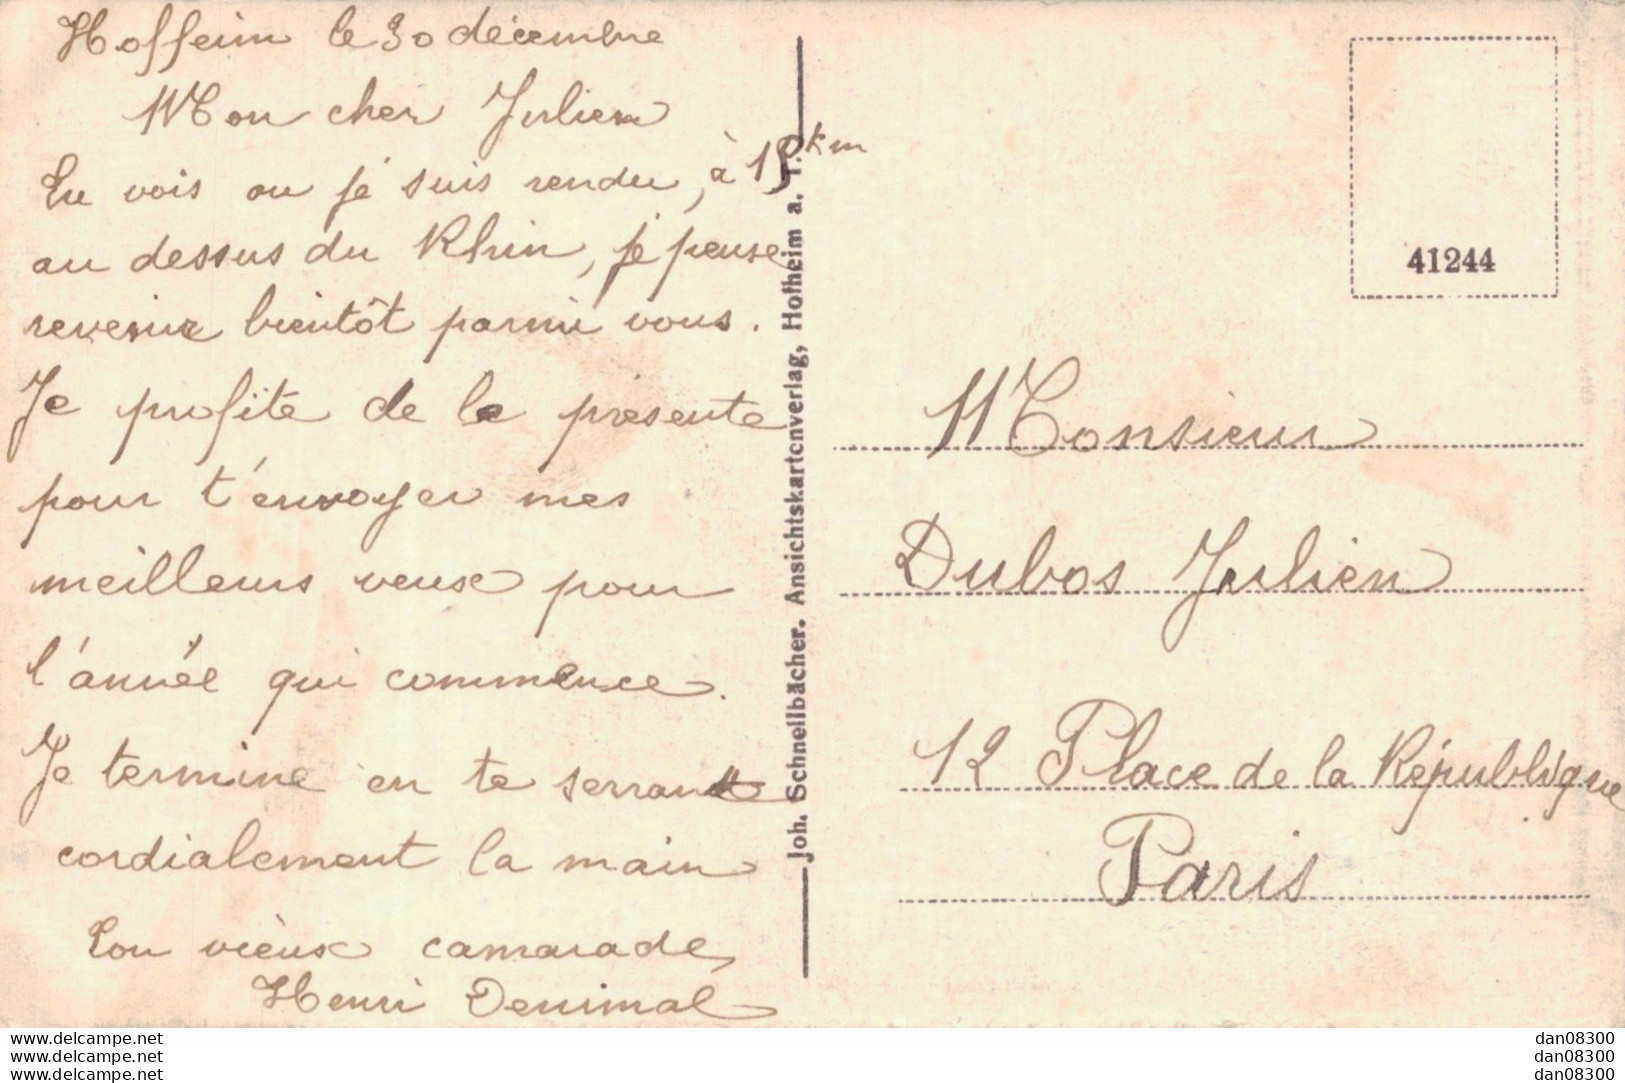 Hoffeim le 30 décembre
Mon cher Julien
Tu vois ou je suis rendu, à 15 km
au dessus du Rhin, je pense
revenir bientôt parmi vous.
Je profite de la présente
pour t'envoyer mes
meilleurs veux pour
l'année qui commence.
Je termine en te serrant
cordialement la main
Ton vieux camarade,
Henri Denimal
Joh. Schnellbächer. Ansichtskartenverlag, Hofheim a. T.
41244
Monsieur
Dubos Julien
12 Place de la République
Paris
www.delcampe.net
www.delcampe.net
www.delcampe.net
dan08300
dan08300
dan08300